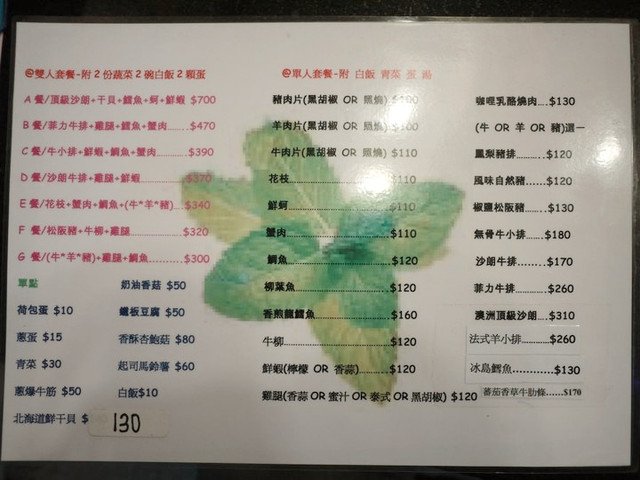 @雙人套餐-附 2 份蔬菜 2 碗白飯 2 顆蛋
A 餐/頂級沙朗牛排+干貝+鱈魚+蚵+鮮蝦 $700
B 餐/菲力牛排+雞腿+鱈魚+蟹肉.........$470
C 餐/牛小排+鮮蝦+鯛魚+蟹肉.........$390
D 餐/沙朗牛排+雞腿+鮮蝦............$370
E 餐/花枝+蟹肉+鯛魚+(牛*羊*豬)...$340
F 餐/松阪豬+牛柳+雞腿............$320
G 餐/(牛*羊*豬)+雞腿+鯛魚.........$300
單點
荷包蛋 $10
蔥蛋 $15
青菜 $30
蔥爆牛筋 $50
北海道鮮干貝 $ 130
奶油香菇 $50
鐵板豆腐 $50
香酥杏鮑菇 $80
起司馬鈴薯 $60
白飯$10
@單人套餐-附 白飯 青菜 蛋 湯
豬肉片(黑胡椒 OR 照燒) $100
羊肉片(黑胡椒 OR 照燒) $100
牛肉片(黑胡椒 OR 照燒) $110
花枝..............................$110
鮮蚵..............................$110
蟹肉..............................$110
鯛魚..............................$120
柳葉魚...........................$120
香煎龍鱈魚.....................$160
牛柳..............................$120
鮮蝦(檸檬 OR 香蒜).........$120
雞腿(香蒜 OR 蜜汁 OR 泰式 OR 黑胡椒) $120
咖哩乳酪燒肉....$130
(牛 OR 羊 OR 豬)選一
鳳梨豬排..........$120
風味自然豬......$120
椒鹽松阪豬......$130
無骨牛小排......$180
沙朗牛排.........$170
菲力牛排.........$260
澳洲頂級沙朗...$310
法式羊小排.........$260
冰島鱈魚............$130
蕃茄香草牛肋條......$170